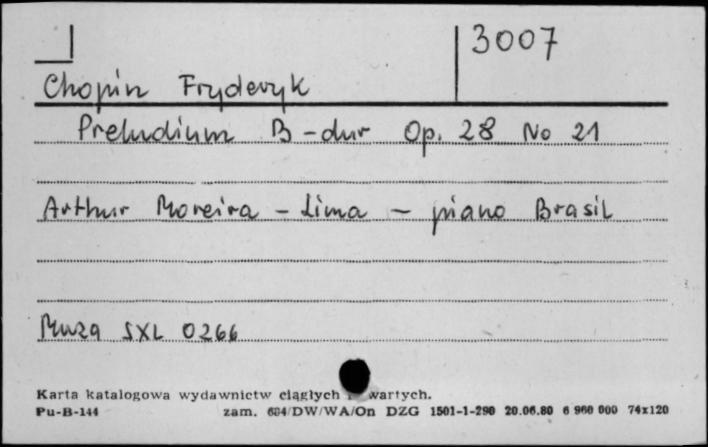 3007
Chopin Fryderyk
Preludium B-dur Op. 28 No 21
Arthur Moreira - Lima - piano Brasil
Muza SXL 0266
Karta katalogowa wydawnictw ciągłych wartych.
Pu-B-144 zam. 684/DW/WA/On DZG 1501-1-290 20.06.80 6 960 000 74x120